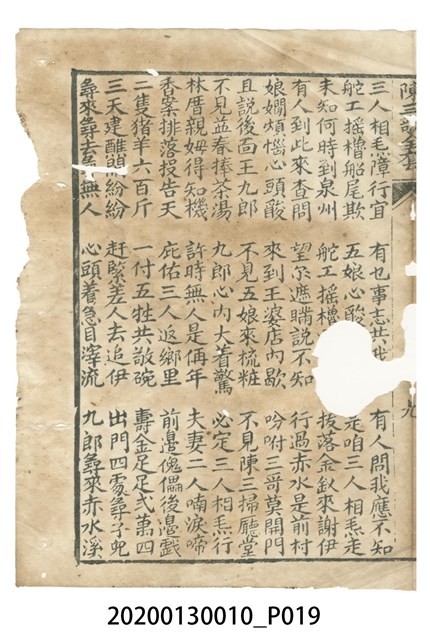 陳三歌全
三人相炁障行宜 有也事志共我 有人問我應不知
舵工搖櫓船尾欺 五娘心酸 走咱三人相炁走
未知何時到泉州 舵工搖櫓 拔落金釵來謝伊
有人到此來查問 望尔遮瞞說不知 行過赤水是前村
娘嫺煩惱心頭酸 來到王婆店內歇 吩咐三哥莫開門
且說後面王九郎 不見五娘來梳粧 不見陳三掃廳堂
不見益春捧茶湯 九郎心內大着驚 必定三人相炁行
林厝親姆得知機 許時無人是侢年 夫妻二人喃淚啼
香案排落投告天 庇佑三人返鄉里 前邊傀儡後邊戲
二隻猪羊六百斤 一付五牲共敬碗 壽金足足弍萬四
三天建醮鬧紛紛 赶緊差人去追伊 出門四處尋子兒
尋來尋去尋無人 心頭着急目滓流 九郎尋來赤水溪
20200130010_P019